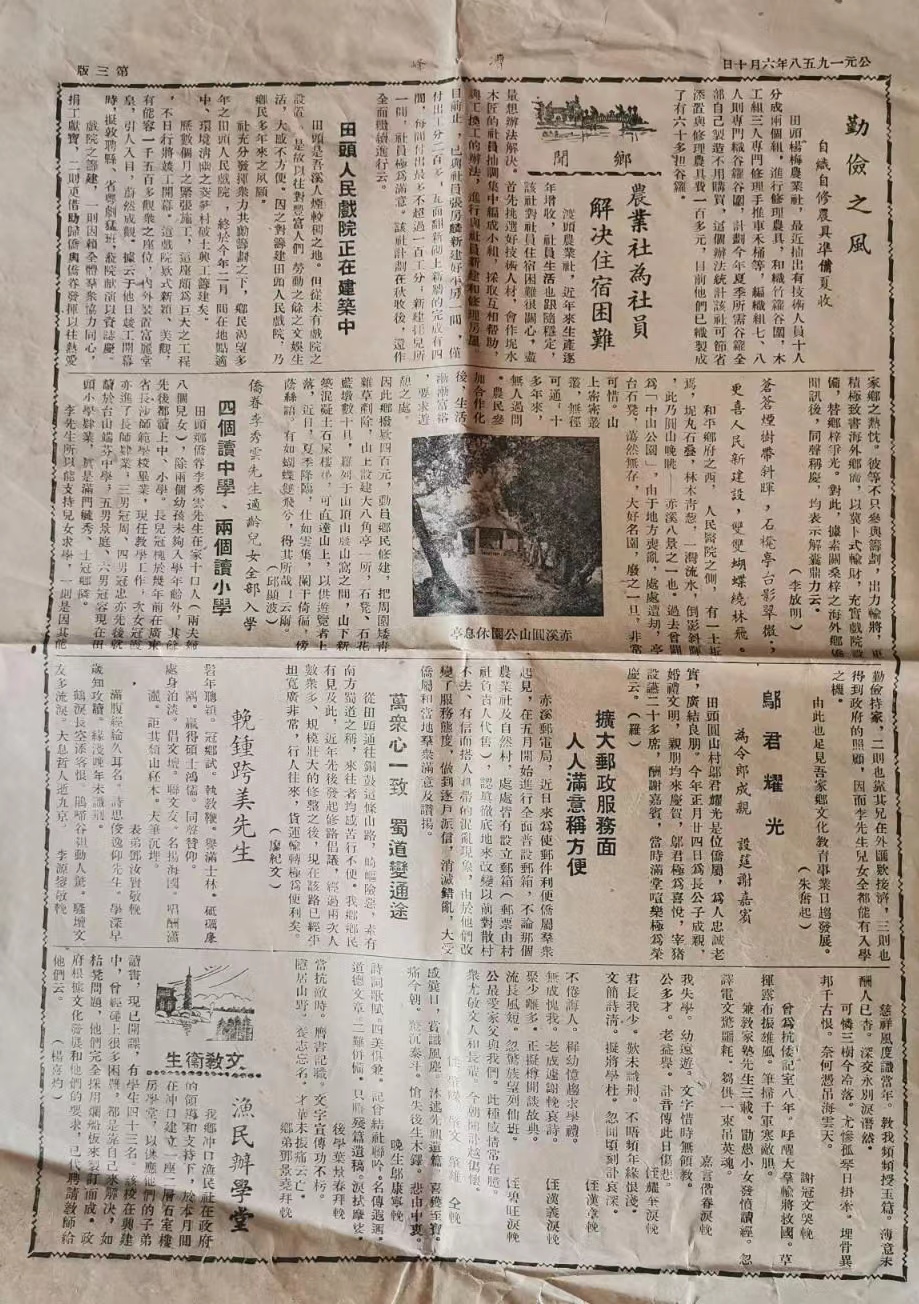 公元一九五八年六月十日
第三版
勤儉之風
自織自修農具準備夏收
田頭楊梅農業社，最近抽出有技術人員十人
分成兩個組，進行修理農具，和織竹籮谷圍，木
工組三人專門修理手推車禾桶等，編織組七、八
人則專門織谷籮谷圍，計劃今年夏季所需谷籮全
部自己製造不用購買，這個辦法統計該社可節省
添置與修理農具費一百多元，目前他們已織製成
了有六十多担谷籮。
鄉聞
農業社為社員
解决住宿困難
渡頭農業社，近年來生產逐
年增收，社員生活也跟隨穩定，
該社對社員住宿困難很關心，盡
量想辦法解决。首先挑選好技術人材，會作坭水
木匠的社員抽調集中編成小組，採取互相帮助，
與工換工的辦法，進行與社員新建和修理房屋。
全面繼續進行云。
田頭人民戲院正在建築中
田頭是吾溪人煙較稠之地。但從未有戲院之
設置，是故以往對豐富人們勞動之餘之文娛生
活，大感不方便。因之對籌建田頭人民戲院，乃
鄉民多年來之夙願。
社充分發揮衆力共動籌劃之下，鄉民渴望多
年之田頭人民戲院，終於今年二月
歷數個月之緊張施工，這座頗為巨大之工程
，不日行將竣工開幕。這戲院欵式新穎、美觀，
有能容一千五百多觀衆之座位，內外裝置富麗堂
皇，引人入目，蔚然成觀。據云于他日竣工開幕
時，擬敦聘縣、省粵劇猛班，蒞院献演以資誌慶。
戲院之籌建，一則因賴全體羣衆協力同心，
捐工獻寶，二則更借助歸僑與僑眷發揮以往熱愛
家鄉之熱忱。彼等不只參與籌劃，出力輸將，更
積極致書海外鄉僑，以冀卜式輸財，充實戲院設
備，替鄉梓爭光。對此，據素關桑梓之海外鄉僑
聞訊後，同聲稱慶，均表示解囊鼎力云。
（李放明）
蒼蒼煙樹帶斜暉，石櫈亭台影翠微，
更喜人民新建設，雙雙蝴蝶繞林飛。
和平鄉府之西，人民醫院之側，有一土坵
焉，坭丸石叠，林木青葱，一灣流水，倒影斜暉
，此乃圓山晚眺，赤溪八景之一也。過去曾闢
為「中山公園」，由于地方喪亂，處處遭刼，亭
台石凳，蕩然無存，大好名園，廢之一旦，非常
可惜。山
上密密叢
叢，無徑
可通，十
多年來，
無人過問
。農民參
加合作化
後，生活
漸漸富裕
，要求遊
憩之處。
因此鄉撥欵四百元，動員鄉民修建，把周圍矮青
雜草剷除，山上設建大八角亭一所，石凳、石花
藍墩數十具，羅列于山頂山腰山窩之間，山下新
築混凝土石屎樓梯，可直達山上，以供遊覽者上
落，近日，夏季降臨，仕如雲集，闌干倚偏，傍
蔭絲語。有如蝴蝶雙飛兮，得其所哉！云爾。
（邱顯波）
赤溪圓山公園休息亭
僑眷李秀雲先生適齡兒女全部入學
四個讀中學、兩個讀小學
田頭鄉僑眷李秀雲先生在家十口人（兩夫婦
八個兒女），除兩個幼孩未夠入學年齡外，其餘
按次都讀上中、小學。長兒冠槐於幾年前在廣東
省長沙師範學校畢業，現任教學工作，次女冠
亦進了長師肄業。三男冠周、四男冠忠亦先後就
讀於台山端芬中學，五男景庭、六男冠容現在田
頭小學肄業，眞是滿門毓秀，士冠鄉隣。
李先生所以能支持兒女求學，一則是因其能
勤儉持家，二則也靠其兒在外匯欵接濟，三則也
得到政府的照顧，因而李先生兒女全都能有入學
之機。
由此也足見吾家鄉文化教育事業日趨發展。
（朱奮起）
鄔君耀光
為令郎成親　設筵謝嘉賓
田頭圓山村鄔君耀光是位僑屬，為人忠誠老
實，廣結良朋。今年正月廿四日為長公子成親，
婚禮文明，親朋均來慶賀，鄔君極為喜悅，宰猪
設讌二十多席，酬謝嘉賓，當時滿堂喧樂極為榮
慶云。（羅）
擴大郵政服務面
人人滿意稱方便
赤溪郵電局，近日來為使郵件利便僑屬羣衆
起見，在五月開始進行全面普設郵箱，不論那個
農業社及自然村，處處皆有設立郵箱（郵票由村
社負責人代售），認眞徹底地來改變以前對散村
不去，有信面搭人携帶的混亂現象，由於他們改
變了服務態度，做到逐戶派信，消滅錯亂，大受
僑屬和當地羣衆滿意及讚揚。
萬衆心一致　蜀道變通途
從田頭通往銅鼓這條山路，崎嶇險惡，素有
南方蜀道之稱，來往者均感苦行不便。我鄉鄉民
有見及此，近年先後發起修路倡議，經過兩次人
數衆多，規模壯大的修整之後，現在該路已經平
坦寬廣非常，行人往來，貨運輸轉極為便利矣。
（廖紀文）
輓鍾跨美先生
岩年聰穎。冠鄉試。執教鞭。譽滿士林。砥礪廉
隅。贏得碩士鴻儒。同聲贊仰。
處身泊淡。倡文壇。聯文友。名揚海國。唱酬瀟
灑。詎其頹山坏木。大筆沉埋。
表弟鄧汝賢敬輓
滿腹經綸久耳名。詩思俊逸仰先生。學深早
歲知攻績。緣淺晚年未識荊。
鶴淚長空添客恨。鵑啼谷咀動人驚。騷壇文
友多流淚。大息哲人逝九京。　李源發敬輓
慈祥風度識當年。教我頻頻授玉篇。薄意未
酬人已杳。深交永別淚潸然。
可憐三樹今冷落。尤慘孤琴日掛牽。埋骨異
邦千古恨。奈何憑吊海雲天。
謝冠文哭輓
曾為抗倭記室八年。呼醒大羣輸將救國。草
揮露布振雄風。筆掃千軍寒敵胆。
兼教家塾先生三載。勖愚小女發憤讀經。忽
譯電文驚噩耗。芻俱一束吊英魂。
嘉言偕眷淚輓
我失學。幼遠遊。文字惜時無領教。
公多才。老益譽。訃音傳此日傷悲。
侄耀華淚輓
君長我少。欵未識荆。不唔頻年緣恨淺。
文簡詩清。擬將學杜。忽聞頃刻訃哀深。
侄漢章輓
不倦誨人。稚幼憶趨求學禮。
無成愧我。老成遽謝輓哀詩。
侄漢義淚輓
聚少離多。正擬樽開談故典。
流長風短。忽歎族望列仙班。
侄碧旺淚輓
公最愛家父與我們。此種感情常在臆。
衆尤敬文人和長輩。今朝聞訃越傷懷。
晚生鄔康寧輓
詩詞歌賦。四美俱兼。記會結社聯吟。名傳遐邇。
後學葉景春拜輓
當抗敵時。膺書記職。文字宣傳功不朽。
隱居山野。養志忘名。才華未振痛云亡。
鄉弟鄧景堯拜輓
文教衛生
漁民辦學堂
我鄉冲口漁民社在政府
的領導和支持下，於本月間
在冲口建立一座二層石室樓
房學堂，以供應他們的子弟
讀書，現已開課，有學生四十三名。該校在興建
中，曾經碰上很多困難，都是靠自己來解决，如
枱凳問題，他們完全採用爛船板來製訂而成。政
府根據文化發展和他們的要求，已代聘請教師給
他們云。
（楊喜均）